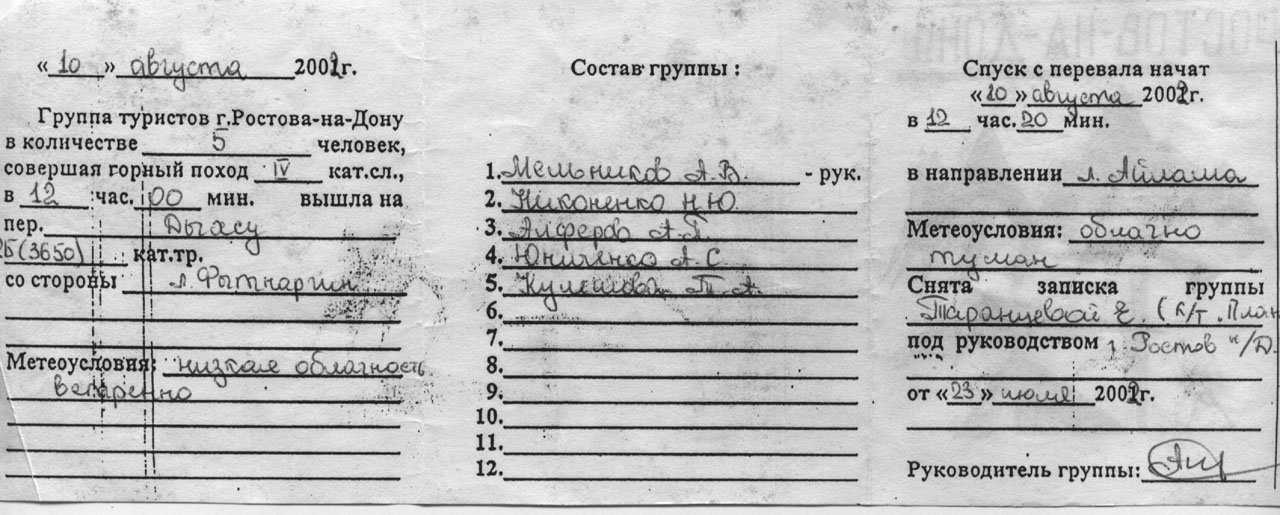 «10» августа 2002г.
Группа туристов г.Ростова-на-Дону
в количестве 5 человек,
совершая горный поход IV кат.сл.,
в 12 час. 00 мин. вышла на
пер. Дыхсу
2Б (3650) кат.тр.
со стороны л. Фытнаргин
Метеоусловия: низкая облачность
ветренно
Состав группы :
1. Мельников А.В. - рук.
2. Никоненко Н.Ю.
3. Алферов А.П.
4. Юниченко А.С.
5. Кулешова Т.А.
6.
7.
8.
9.
10.
11.
12.
РОСТОВ-НА-ДОНУ
Спуск с перевала начат
«10» августа 2002г.
в 12 час. 20 мин.
в направлении л. Айлама
Метеоусловия: облачно
туман
Снята записка группы
Таранцевой Е. (к/т. План
под руководством г. Ростов н/Д.
от «23» июля 2002г.
Руководитель группы: